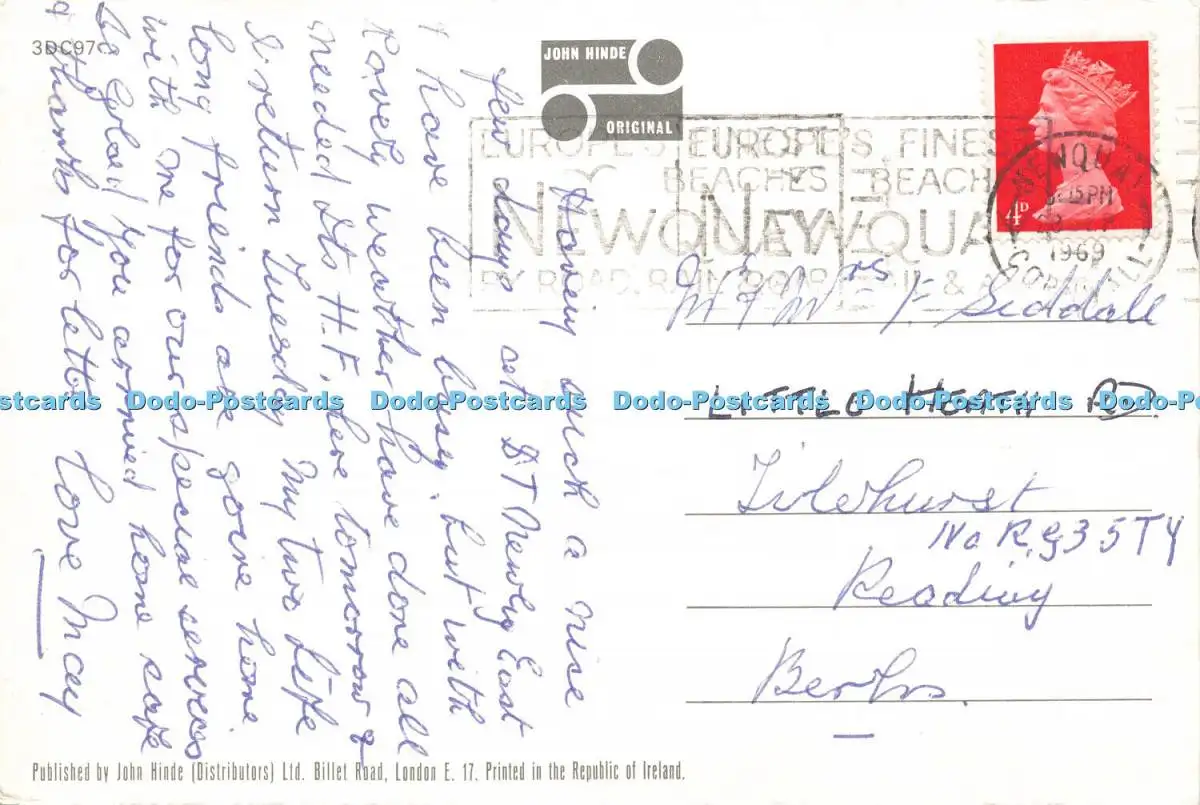 3DC97
JOHN HINDE
ORIGINAL
Having such a nice
few days at ST Newly East
I have been busy. but with
Lovely weather have done all
needed. Its H.F. here tomorrow &
I return Tuesday. My two life
long friends are going home
with me for our special services
be Glad you arrived home safe
& thanks for letter Love May
EUROPE'S FINEST
BEACHES
NEWQUAY
BY ROAD, RAIL & AIR
EUROPE'S FINES
BEACH
NEWQUAY
NEWQUAY
15 PM
1969
4D
Mr & Mrs F. Siddall
LITTLE HEATH RD.
Tilehurst
No RG3 5TY
Reading
Berks.
Dodo-Postcards Dodo-Postcards Dodo-Postcards Dodo-Postcards Dodo-Postcards
Published by John Hinde (Distributors) Ltd. Billet Road, London E. 17. Printed in the Republic of Ireland.